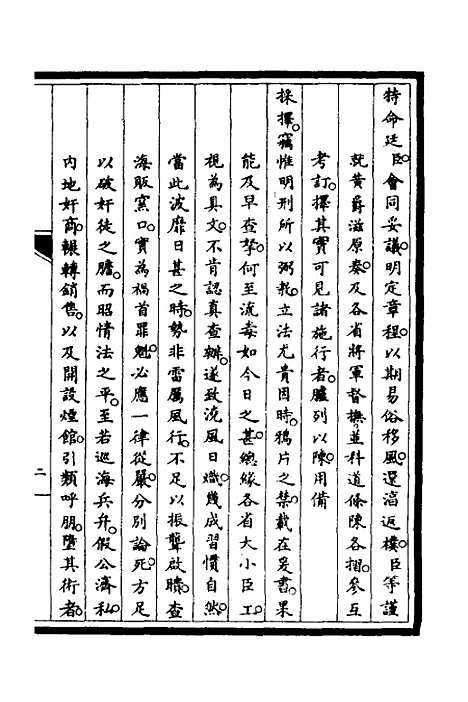 特命廷臣。會同妥議。明定章程。以期易俗移風。還滔返樸。臣等謹
就黃爵滋原奏。及各省將軍督撫。並科道條陳各摺。參互
考訂。擇其實可見諸施行者。臚列以陳。用備
採擇。竊惟明刑所以弼教。立法尤貴因時。鴉片之禁。載在爰書。果
能及早查拏。何至流毒如今日之甚。總緣各省大小臣工。
視為具文。不肯認真查辦。遂致流風日熾。幾成習慣自然。
當此波靡日甚之時。勢非雷厲風行。不足以振聾啟瞶。查
海販窯口。實為禍首罪魁。必應一律從嚴。分別論死。方足
以破奸徒之膽。而昭情法之平。至若巡海兵弁。假公濟私。
內地奸商。輾轉銷售。以及開設煙館。引類呼朋。墮其術者。
二一